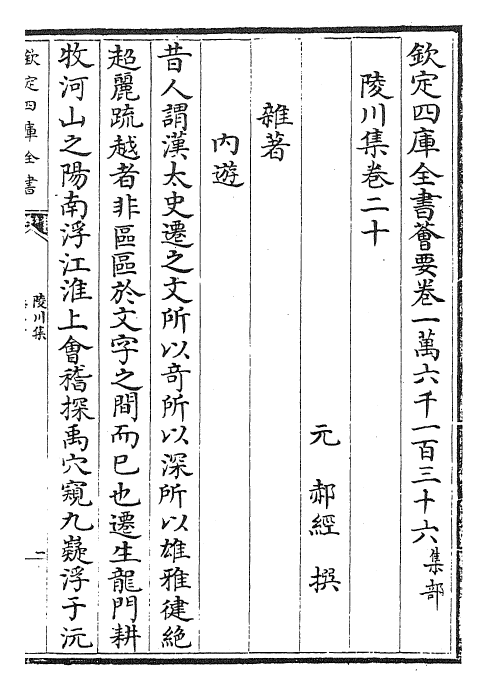 欽定四庫全書薈要卷一萬六千一百三十六集部
陵川集卷二十
元 郝經 撰
雜著
內遊
昔人謂漢太史遷之文所以竒所以深所以雄雅健絶
超麗疏越者非區區於文字之間而已也遷生龍門耕
牧河山之陽南浮江淮上會稽探禹穴窺九嶷浮于沅
欽定四庫全書
陵川集